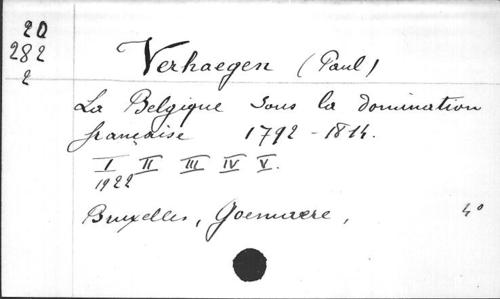 20
282
2
Verhaegen (Paul)
La Belgique sous la domination
française 1792-1814.
I II III IV V.
1922
Bruxelles, Goemaere, 4°